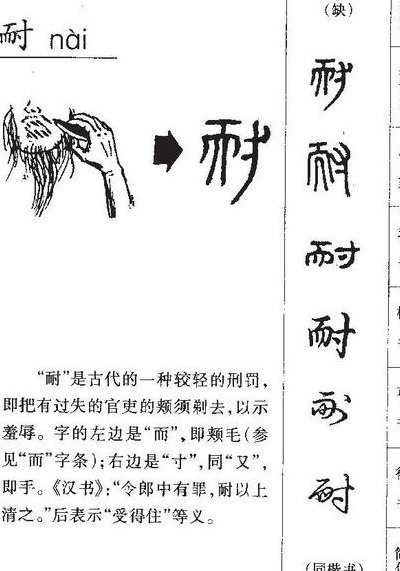 耐 nài
“耐”是古代的一种较轻的刑罚,
即把有过失的官吏的颊须剃去,以示
羞辱。字的左边是“而”,即颊毛(参
见“而”字条);右边是“寸”,同“又”,
即手。《汉书》:“令郎中有罪,耐以上
请之。”后表示“受得住”等义。
(缺)
耐
耐
耐
耐
耐
耐
(同楷书)